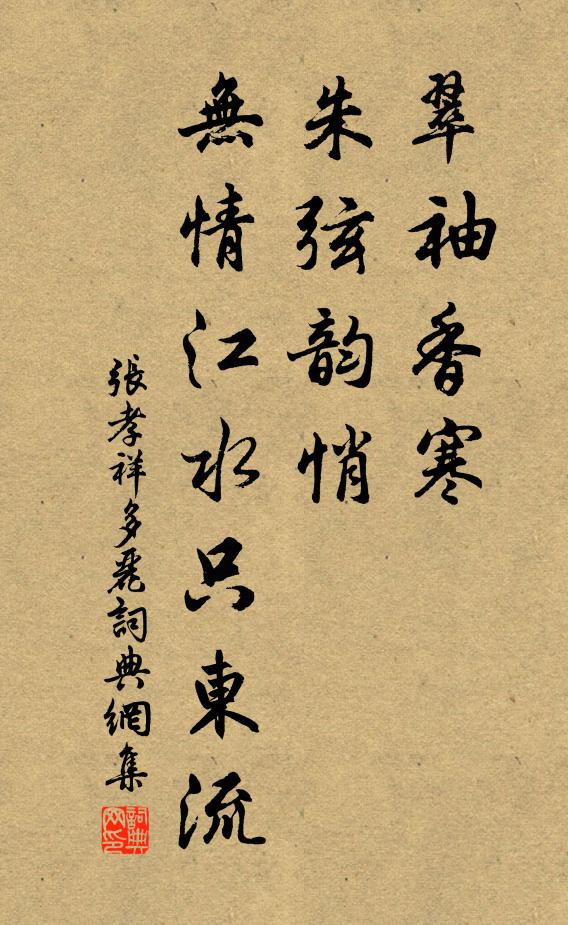 翠袖香寒
朱弦韵悄
無情江水只東流
張孝祥多麗詞典網集
詞典網印